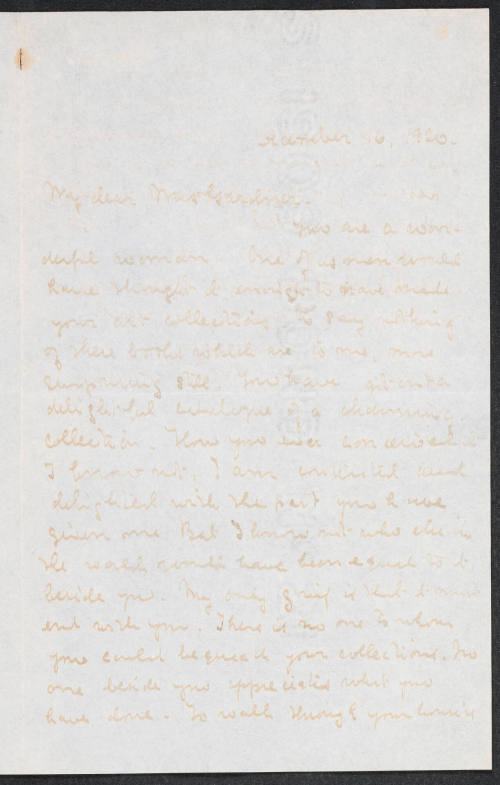 December 16, 1920.
My dear Mrs Gardner.
You are a won-
derful woman. One of us men would
have thought it enough to have made
your art collections to say nothing
of these books which are to me, more
surprising still. You have
delightful catalogue of a charming
collection. How you ever conceived it
I know not, I am contented and
delighted with the part you have
given me. But I know not who else in
the world would have been equal to it
beside you. My only grief is that it must
end with you. There is no one to whom
you could bequeath your collections. No
one beside you appreciates what you
have done. To walk through your house is